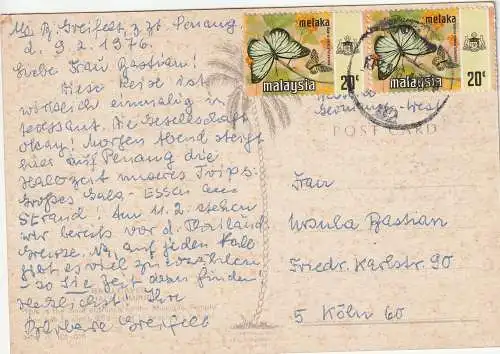 Greifelt, z.zt. Penang
d. 9.2.1976.
Liebe Frau Bastian!
Diese Reise ist
wirklich einmalig in-
teressant. Die Gesellschaft
okay! Morgen Abend steigt
hier auf Penang die
Halbzeit unseres Trips:
Großes Gala-Essen am
Strand! Am 11.2. stehen
wir bereits vor d. Thailänd.
Grenze. Na, auf jeden Fall
gibt es viel zu erzählen
- so Sie Zeit dann finden
Herzlichst! Ihre
Barbara Greifelt
melaka
malaysia
20c
melaka
malaysia
20c
POST CARD
Frau
Ursula Bastian
Friedr. Karlstr. 90
5 Köln 60